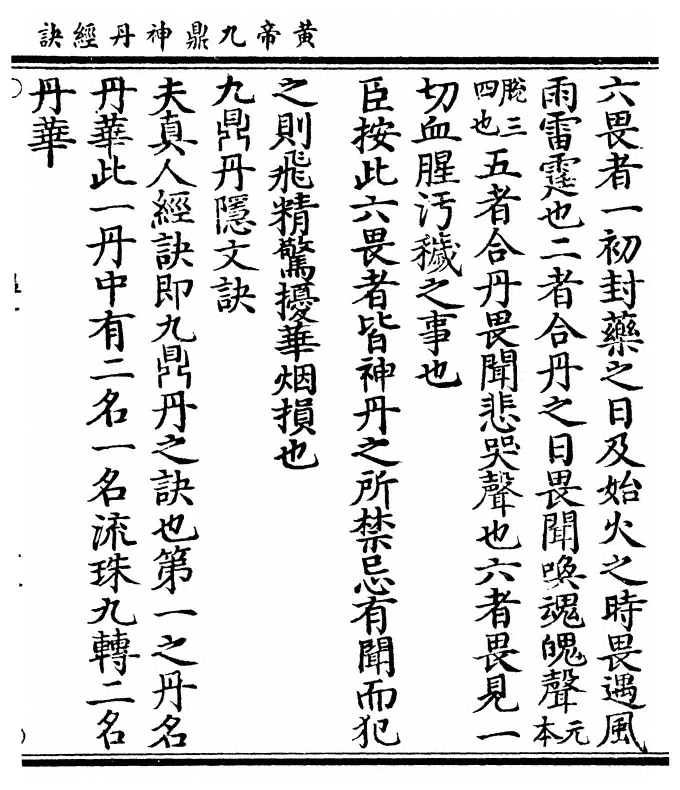 黃帝九鼎神丹經訣
六畏者一初封藥之日及始火之時畏遇風
雨雷霆也二者合丹之日畏聞喚魂魄聲元本
脫三四也五者合丹畏聞悲哭聲也六者畏見一
切血腥汚穢之事也
臣按此六畏者皆神丹之所禁忌有聞而犯
之則飛精驚擾華烟損也
九鼎丹隱文訣
夫真人經訣即九鼎丹之訣也第一之丹名
丹華此一丹中有二名一名流珠九轉二名
丹華